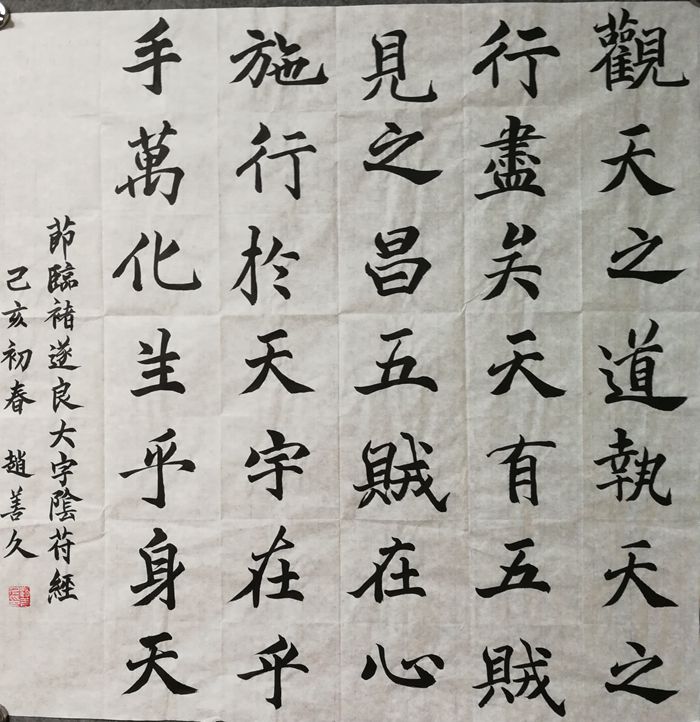 觀天之道執天之
行盡矣天有五賊
見之昌五賊在心
施行於天宇在乎
手萬化生乎身天
節臨褚遂良大字陰苻經
己亥初春 趙善久